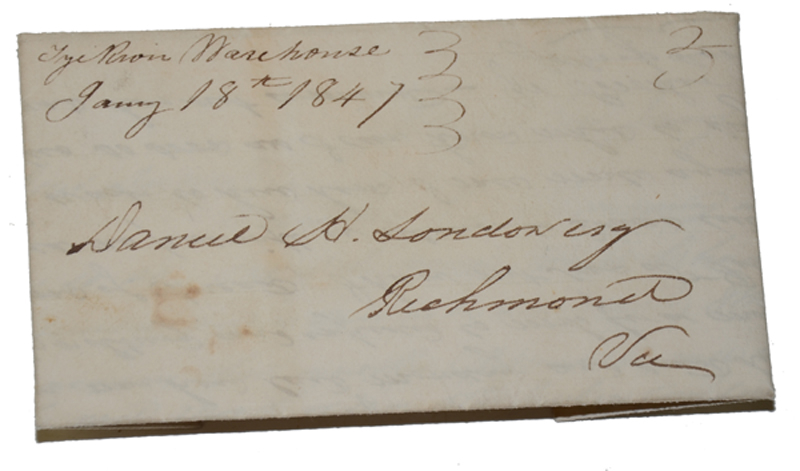 Tye River Warehouse
Jany 18th 1847
5
Daniel H. London esq
Richmond
Va